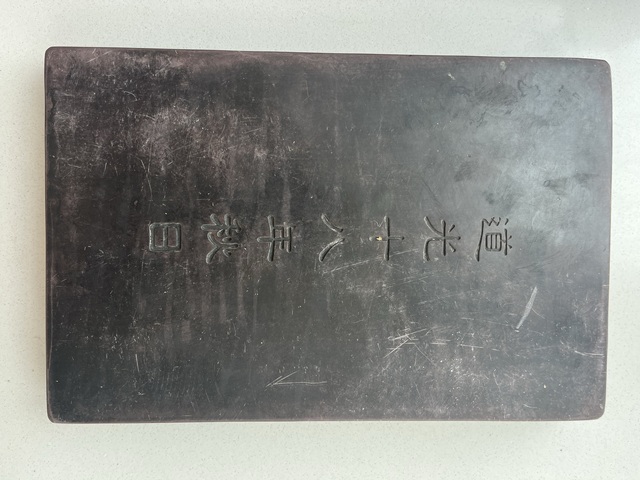 道光十八年秋日